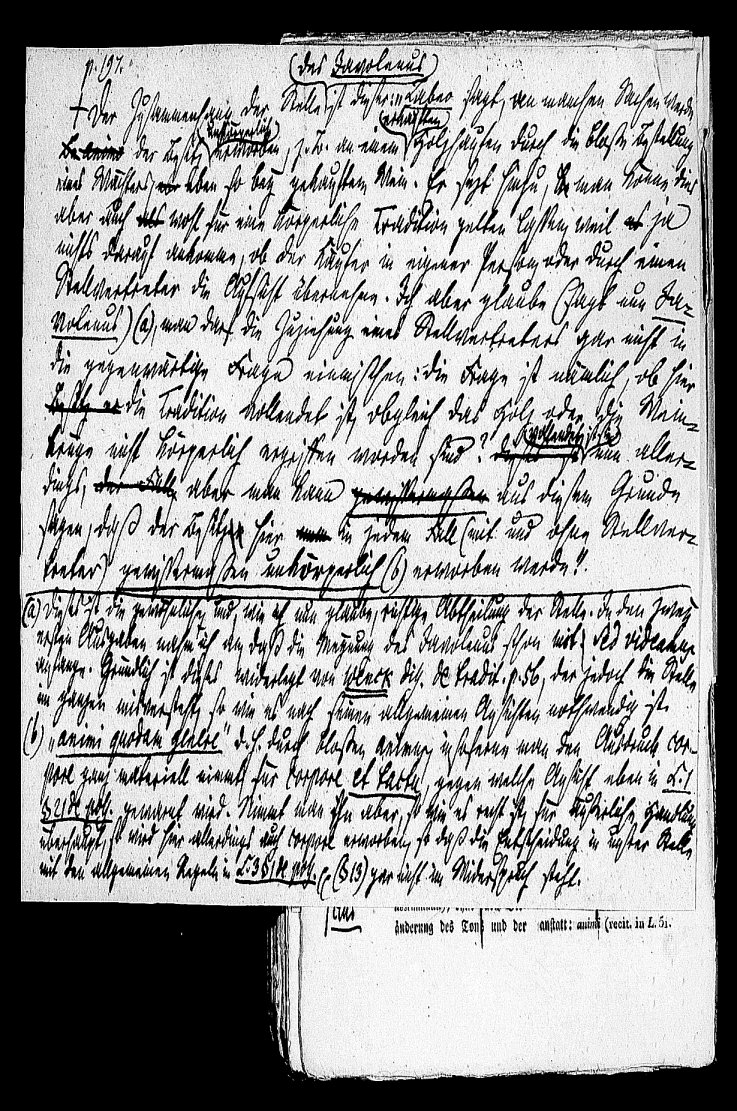 p. 197.
(des Javolenus)
+ Der Zusammenhang der Stelle ist dieser: "Labeo sagt, an manchen Sachen werde
der Besitz unkörperlich erworben, z. B. an einem erkauften Holzhaufen durch die bloße Bestellung
eines Wächters, eben so bey gekauftem Wein. Er setzt hinzu, man könne dies
aber auch wohl für eine körperliche Tradition gelten lassen, weil es ja
nichts darauf ankomme, ob der Käufer in eigener Person, oder durch einen
Stellvertreter die Aufsicht übernehme. Ich aber glaube (sagt nun Ja-
volenus) (a), man darf die Zuziehung eines Stellvertreters gar nicht in
die gegenwärtige Frage einmischen: die Frage ist nämlich, ob hier
die Tradition vollendet ist, obgleich das Holz oder die Wein-
krüge nicht körperlich ergriffen worden sind? Vollendet ist sie nun aller-
dings, aber man kann aus diesem Grunde
sagen, daß der Besitz hier in jedem Fall (mit und ohne Stellver-
treter) gewissermaßen unkörperlich (b) erworben werde".
(a) Dieses ist die gewöhnliche, und, wie ich nun glaube, richtige Abtheilung der Stelle. In den zwey
ersten Ausgaben nahm ich an daß die Meynung des Javolenus schon mit: sed videamus
anfange. Gründlich ist dieses widerlegt von diss. de tradit. p. 56, der jedoch die Stelle
im ganzen misversteht, so wie es nach seinen allgemeinen Ansichten nothwendig ist
(b) "animi quodam genere" d. h. durch bloßen animus, insoferne man den Ausdruck cor-
pore ganz materiell nimmt für corpore et tactu, gegen welche Ansicht eben in L. 1
§ 21 de poss. gewarnt wird. Nimmt man ihn aber, so wie es recht ist, für äußerliche Handlung
überhaupt, so wird hier allerdings auch corpore erworben, so daß die Entscheidung in unsrer Stelle
mit den allgemeinen Regeln in L. 3 § 1 de poss. (§ 13) gar nicht im Widerspruch steht.
änderung des Tons und der anstatt: animi (recit. in L. 51.